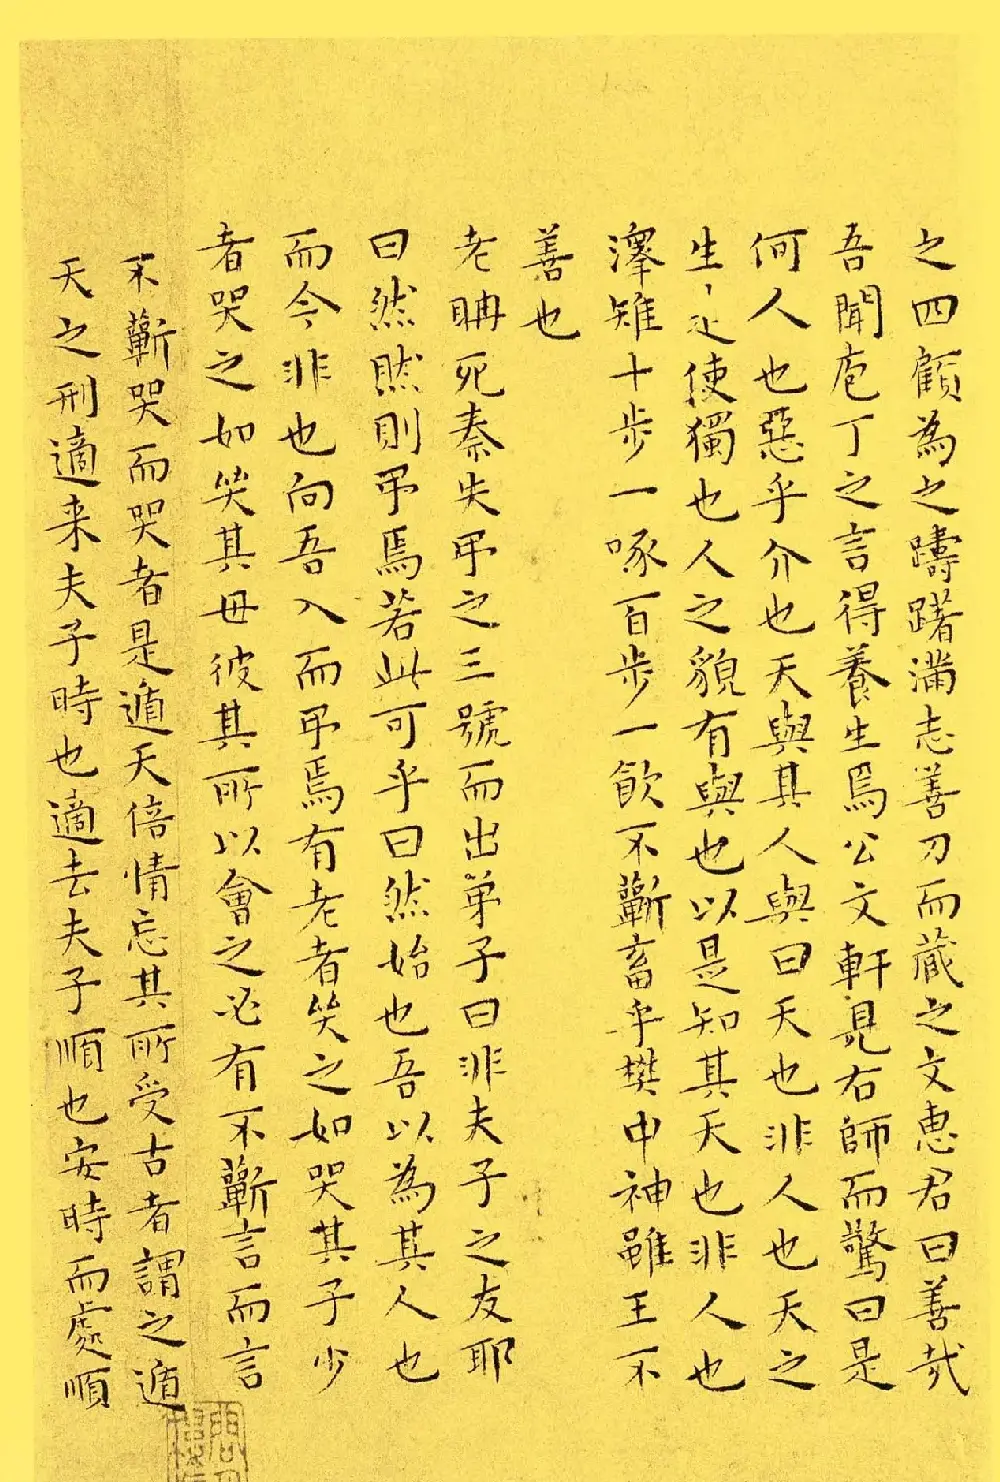 之四顧為之躊躇滿志善刀而藏之文惠君曰善哉
吾聞庖丁之言得養生焉公文軒見右師而驚曰是
何人也惡乎介也天與其人與曰天也非人也天之
生〻之使獨也人之貌有與也以是知其天也非人也
澤雉十步一啄百步一飲不蘄畜乎樊中神雖王不
善也
老聃死秦失弔之三號而出弟子曰非夫子之友耶
曰然然則弔焉若此可乎曰然始也吾以為其人也
而今非也向吾入而弔焉有老者哭之如哭其子少
者哭之如哭其母彼其所以會之必有不蘄言而言
不蘄哭而哭者是遁天倍情忘其所受古者謂之遁
天之刑適来夫子時也適去夫子順也安時而處順